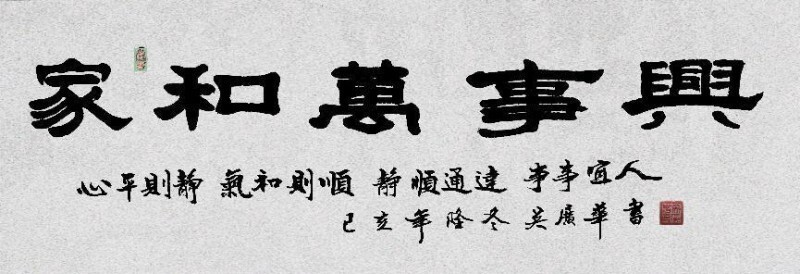 家和萬事興
心平則静 氣和則順 静順通達 事事宜人
己亥年隆冬吴廣華書